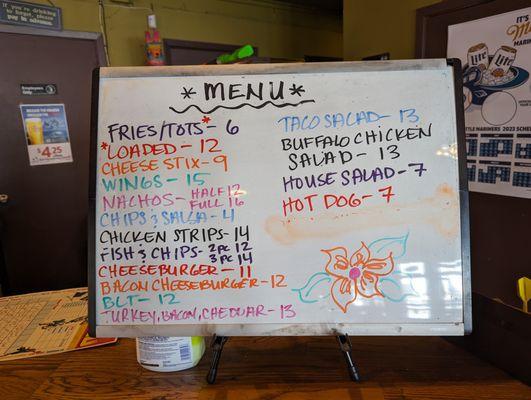 If you're drinking
to forget
please pay in advance
Employees
Only
$4.25
* MENU *
FRIES/TOTS - 6
* LOADED - 12 *
CHEESE STIX - 9
WINGS - 15
NACHOS - HALF 12
FULL 16
CHIPS & SALSA - 4
CHICKEN STRIPS - 14
FISH & CHIPS - 2 PC 12
3 PC 14
CHEESEBURGER - 11
BACON CHEESEBURGER - 12
BLT - 12
TURKEY, BACON, CHEDDAR - 13
TACO SALAD - 13
BUFFALO CHICKEN
SALAD - 13
HOUSE SALAD - 7
HOT DOG - 7
IT'S
Lite Lite
SEATTLE MARINERS 2023